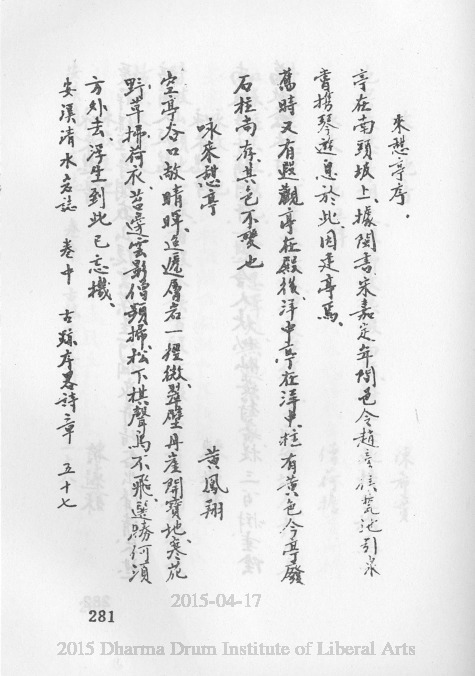 來憇亭序．
亭在南頭坡上、據閩書宋嘉定年間邑令趙
嘗携琴遊息於此、因建亭焉、
舊時又有遐觀亭在殿後、洋中亭在洋中、柱有黃色今亭廢
石柱尚存其色不變也
咏來憇亭
黃鳳翔
空亭谷口敞晴暉、迢遞層岩一徑微、翠壁丹崖開寶地、寒花
野草掃荷衣、苔邊雲影僧頻掃、松下棋聲鳥不飛、選勝何須
方外去浮生到此已忘機、
安溪清水岩誌 卷中 古蹟序畧詩章 五十七
281
2015-04-17
2015 Dharma Drum Institute of Liberal Arts